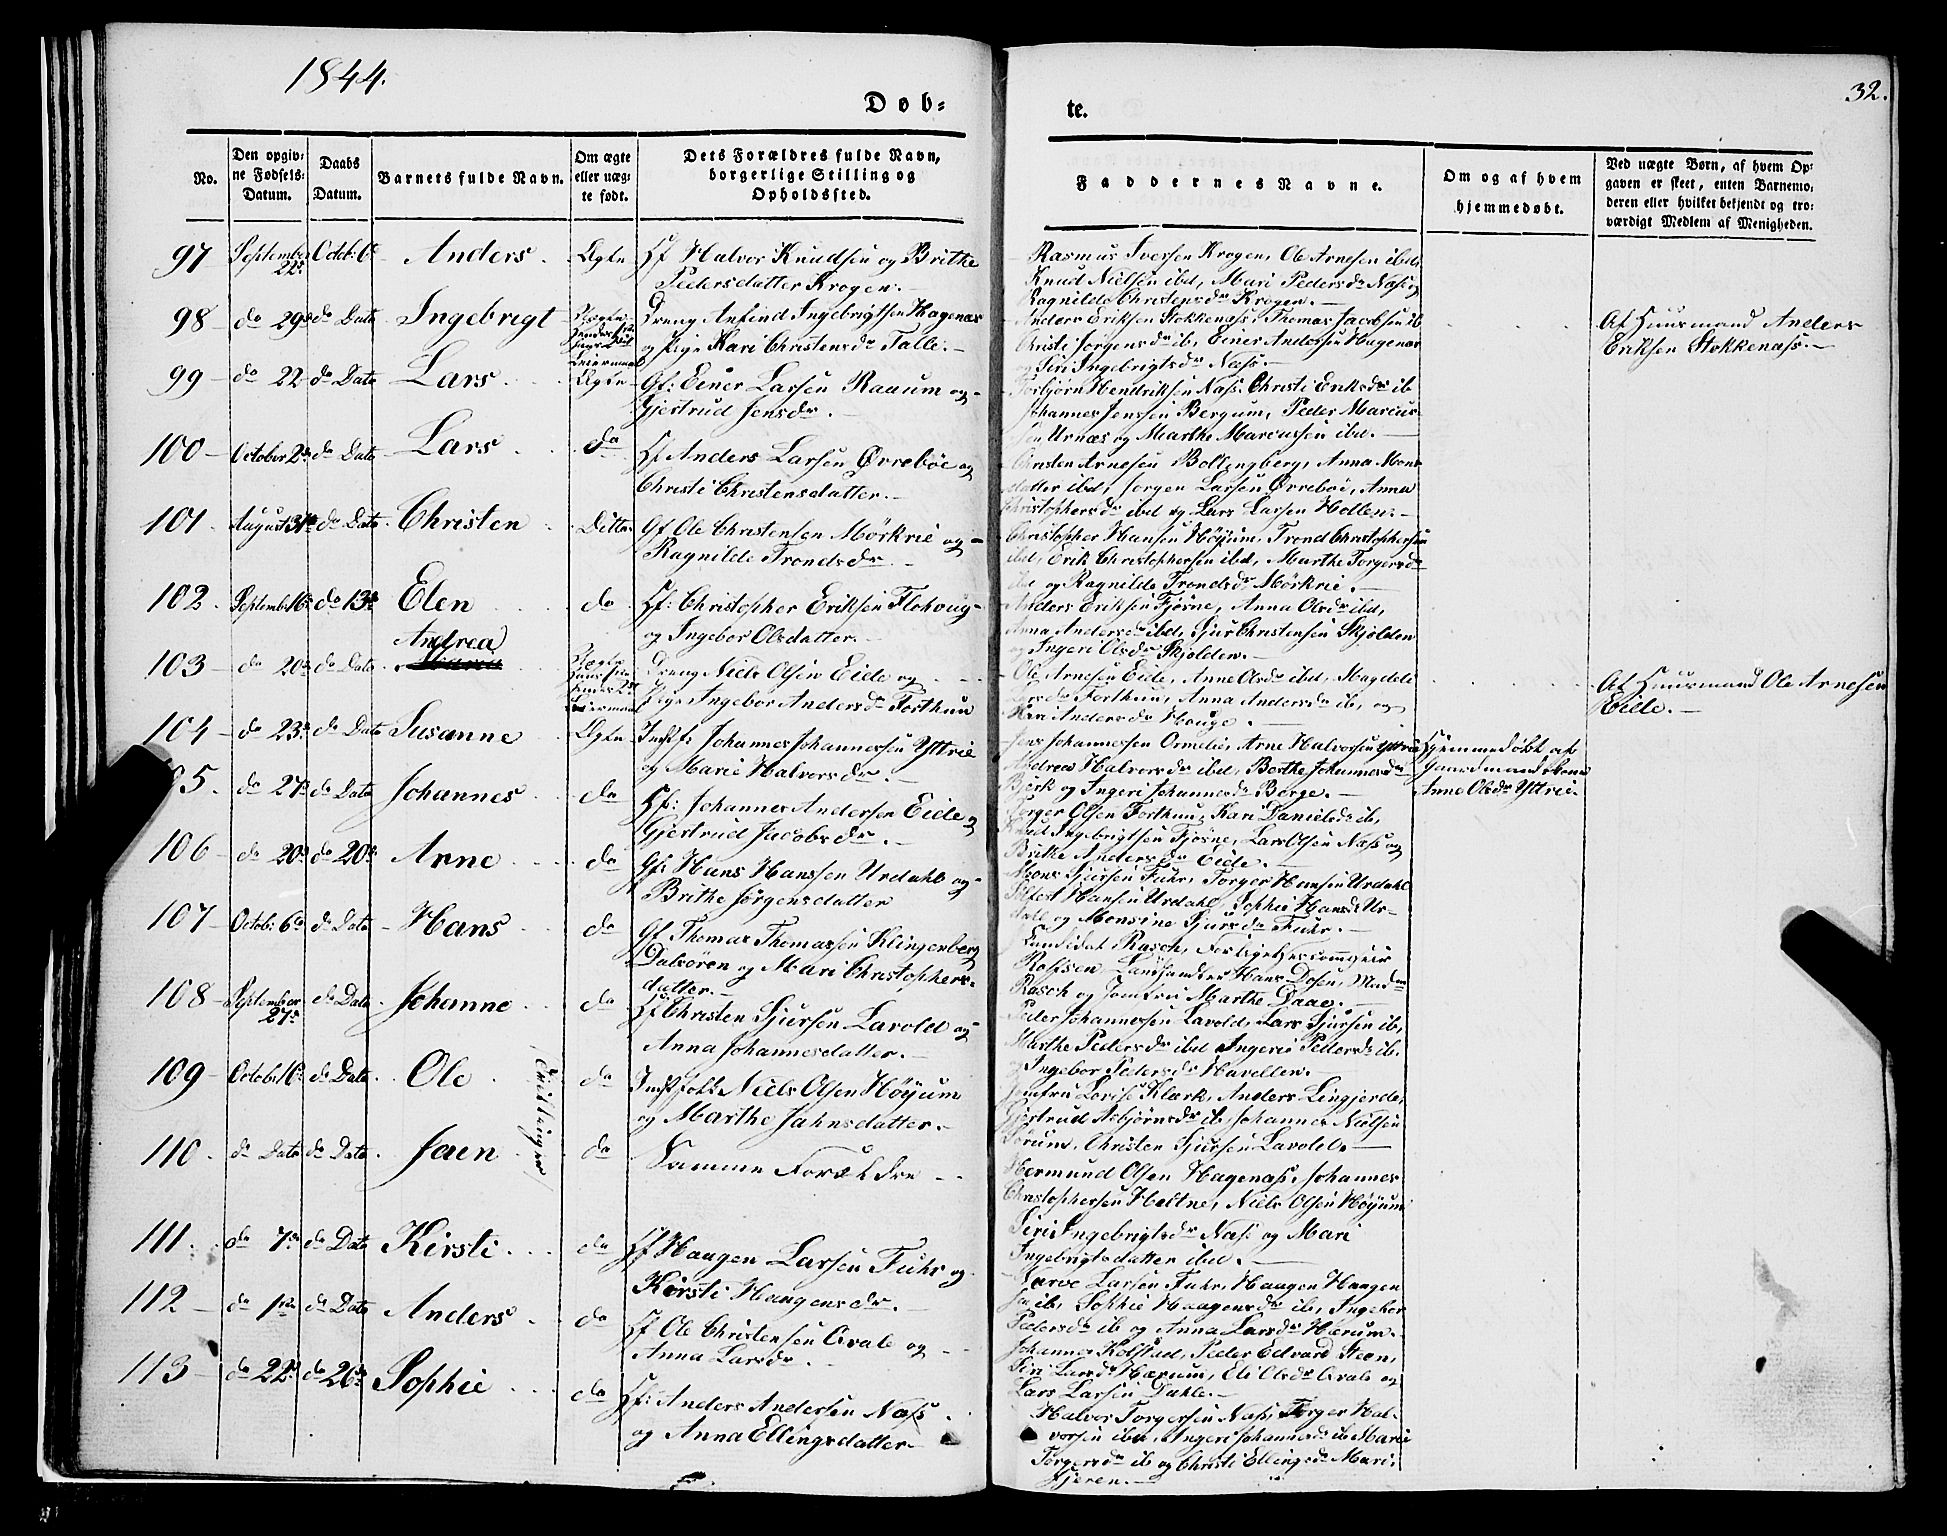 1844.
Døb-
te.
32.
No.
Den opgiv-
ne Fødsels-
Datum.
Daabs
Datum.
Barnets fulde Navn.
Om ægte
eller uæg-
te født.
Dets Forældres fulde Navn,
borgerlige Stilling og
Opholdssted.
Faddernes Navne.
Om og af hvem
hjemmedøbt.
Ved uægte Børn, af hvem Op-
gaven er skeet, enten Barnemo-
deren eller hvilket bekjendt og tro-
værdigt Medlem af Menigheden.
97 September 22de Octob: 6te Anders Ægte Hf Halvor Knudsen og Brithe
Pedersdatter Krogen.
Rasmus Iversen Krogen, Ole Arnesen ibd,
Knud Nielsen ibd, Mari Pedersdr Næss og
Ragnilde Christensdr Krogen.
98 do 29de do Dato Ingebrigt Uægte Dreng Anfind Ingebrigtsen Hagenæs
og Pige Kari Christensdr Talle.
Anders Eriksen Stokkenæss, Thomas Jacobsen ib
Christi Jørgensdr ib, Einer Andersen Hagenæs
og Siri Ingebrigtsdr Næss
Af Huusmand Anders
Eriksen Stokkenæss.
99 do 22 do Dato Lars Ægte Gf: Einer Larsen Raaum og
Gjertrud Jensdr.
Torbjørn Hendriksen Næss, Christi Eriksdr ib
Johannes Jensen Bergum, Peder Marcus-
sen Urnæs og Marthe Marcussen ibd.
100 October 2de do Dato Lars do Hf Anders Larsen Ørrebøe og
Christi Christensdatter.
Christen Arnesen Bollingberg, Anna Mons
datter ibd, Jørgen Larsen Ørrebøe, Anna
Christophersdr ibd og Lars Larsen Hollen.
101. August 31te do Dato Christen Ditto Gf Ole Christensen Mørkrie og
Ragnilde Trondsdr
Christopher Hansen Høyum, Trond Christophersen
ibd, Erik Christophersen ibd, Marthe Torgersdr
ibd og Ragnilde Trondsdr Mørkrie.
102. Septemb: 16de do 13de Elen do Hf: Christopher Eriksen Flohoug
og Ingebor Olsdatter.
Anders Eriksen Fjøsne, Anna Olsdr ibd,
Anna Andersdr ibd, Sjur Christensen Skjolden
og Ingeri Olsdr Skjolden.
103 do 20de do Dato Andrea Uægte Dreng Niels Olsen Eide og
Pige Ingebor Andersdr Forthun
Ole Arnesen Eide, Anne Olsdr ibd, Magdele
Larsdr Forthun, Anna Andersdr ib, og
Kari Andersdr Houge.
Af Huusmand Ole Arnesen
Eide.
104 do 23de do Dato Susanne Ægte Indstf: Johannes Johannessen Yttrie
og Marie Halvorsdr.
Jens Johannessen Ormelie, Arne Halvorsen Yttrie
Andrea Halvorsdr ibd, Berthe Johannesdr
Bjørk og Ingeri Johannesdr Berge.
Hjemmedøbt af
Gaardmandskone
Anne Olsdr Yttrie.
05. do 27de do Dato Johannes do Hf: Johannes Andersen Eide og
Gjertrud Jacobsdr.
Torger Olsen Forthun, Kari Danielsdr ib,
Knud Ingebrigtsen Fjøsne, Lars Olsen Næss og
Brithe Andersdr Eide.
106 do 20de do 20de Arne do Gf: Hans Hanssen Urdahl og
Brithe Jørgensdatter
Mons Sjursen Fuhr, Torger Hansen Urdahl
Hansen Urdahl, Sophie Hansdr Ur-
dahl og Monsine Sjursdr Fuhr.
107 Octob: 6te do Dato Hans do Gf Thomas Thomassen Klingenberg
Dalsøren og Mari Christophers-
datter.
Candidat Rasch, Forligelsescommissair
Rolfsen Landhandler Hans Dosen, Madm
Rasch og Jomfru Marthe Daae.
108 September 27de do Dato Johanne do Hf Christen Sjursen Lavold og
Anna Johannesdatter.
Peder Johannessen Lavold, Lars Sjursen ib,
Marthe Pedersdr ibd Ingerie Pedersdr ib.
og Ingebor Pedersdr Havellen.
109 Octob: 1te do Dato Ole Tvillinger do Indstfolk Niels Olsen Høyum
og Marthe Jahnsdatter.
Jomfru Lovise Klærk, Anders Lingjerde,
Gjertrud Asbjørnsdr ib, Johannes Nielsen
Sørum, Christen Sjursen Lavold.
110. do Dato do Dato Jaen do Samme Forældre
Hermund Olsen Hagenæss, Johannes
Christophersen Heltne, Niels Olsen Høyum
Siri Ingebrigtsdr Næss og Mari
Ingebrigtsdatter ibd.
111. do 7de do Dato Kirsti do Hf Haagen Larsen Fuhr og
Kirsti Haagensdr.
Larsen Fuhr, Haagen Haagen
sen ib, Sophie Haagensdr ib, Ingebor
Pedersdr ib og Anna Larsdr Hærum.
112 do 1ste do Dato Anders do Hf Ole Christensen Qvale og
Anna Larsdr.
Johannes Kolstad, Peder Edvard Steen,
Siri Larsdr Hærum, Eli Olsdr Qvale og
Lars Larsen Dahle.
113 do 22de do 26de Sophie do Hf: Anders Andersen Næss
og Anna Ellingsdatter
Halvor Torgersen Næss, Torger Hal-
vorsen ibd, Ingeri Johannesdr ib Mari
Torgersdr ib og Christi Ellingsdr Mari-
fjæren.